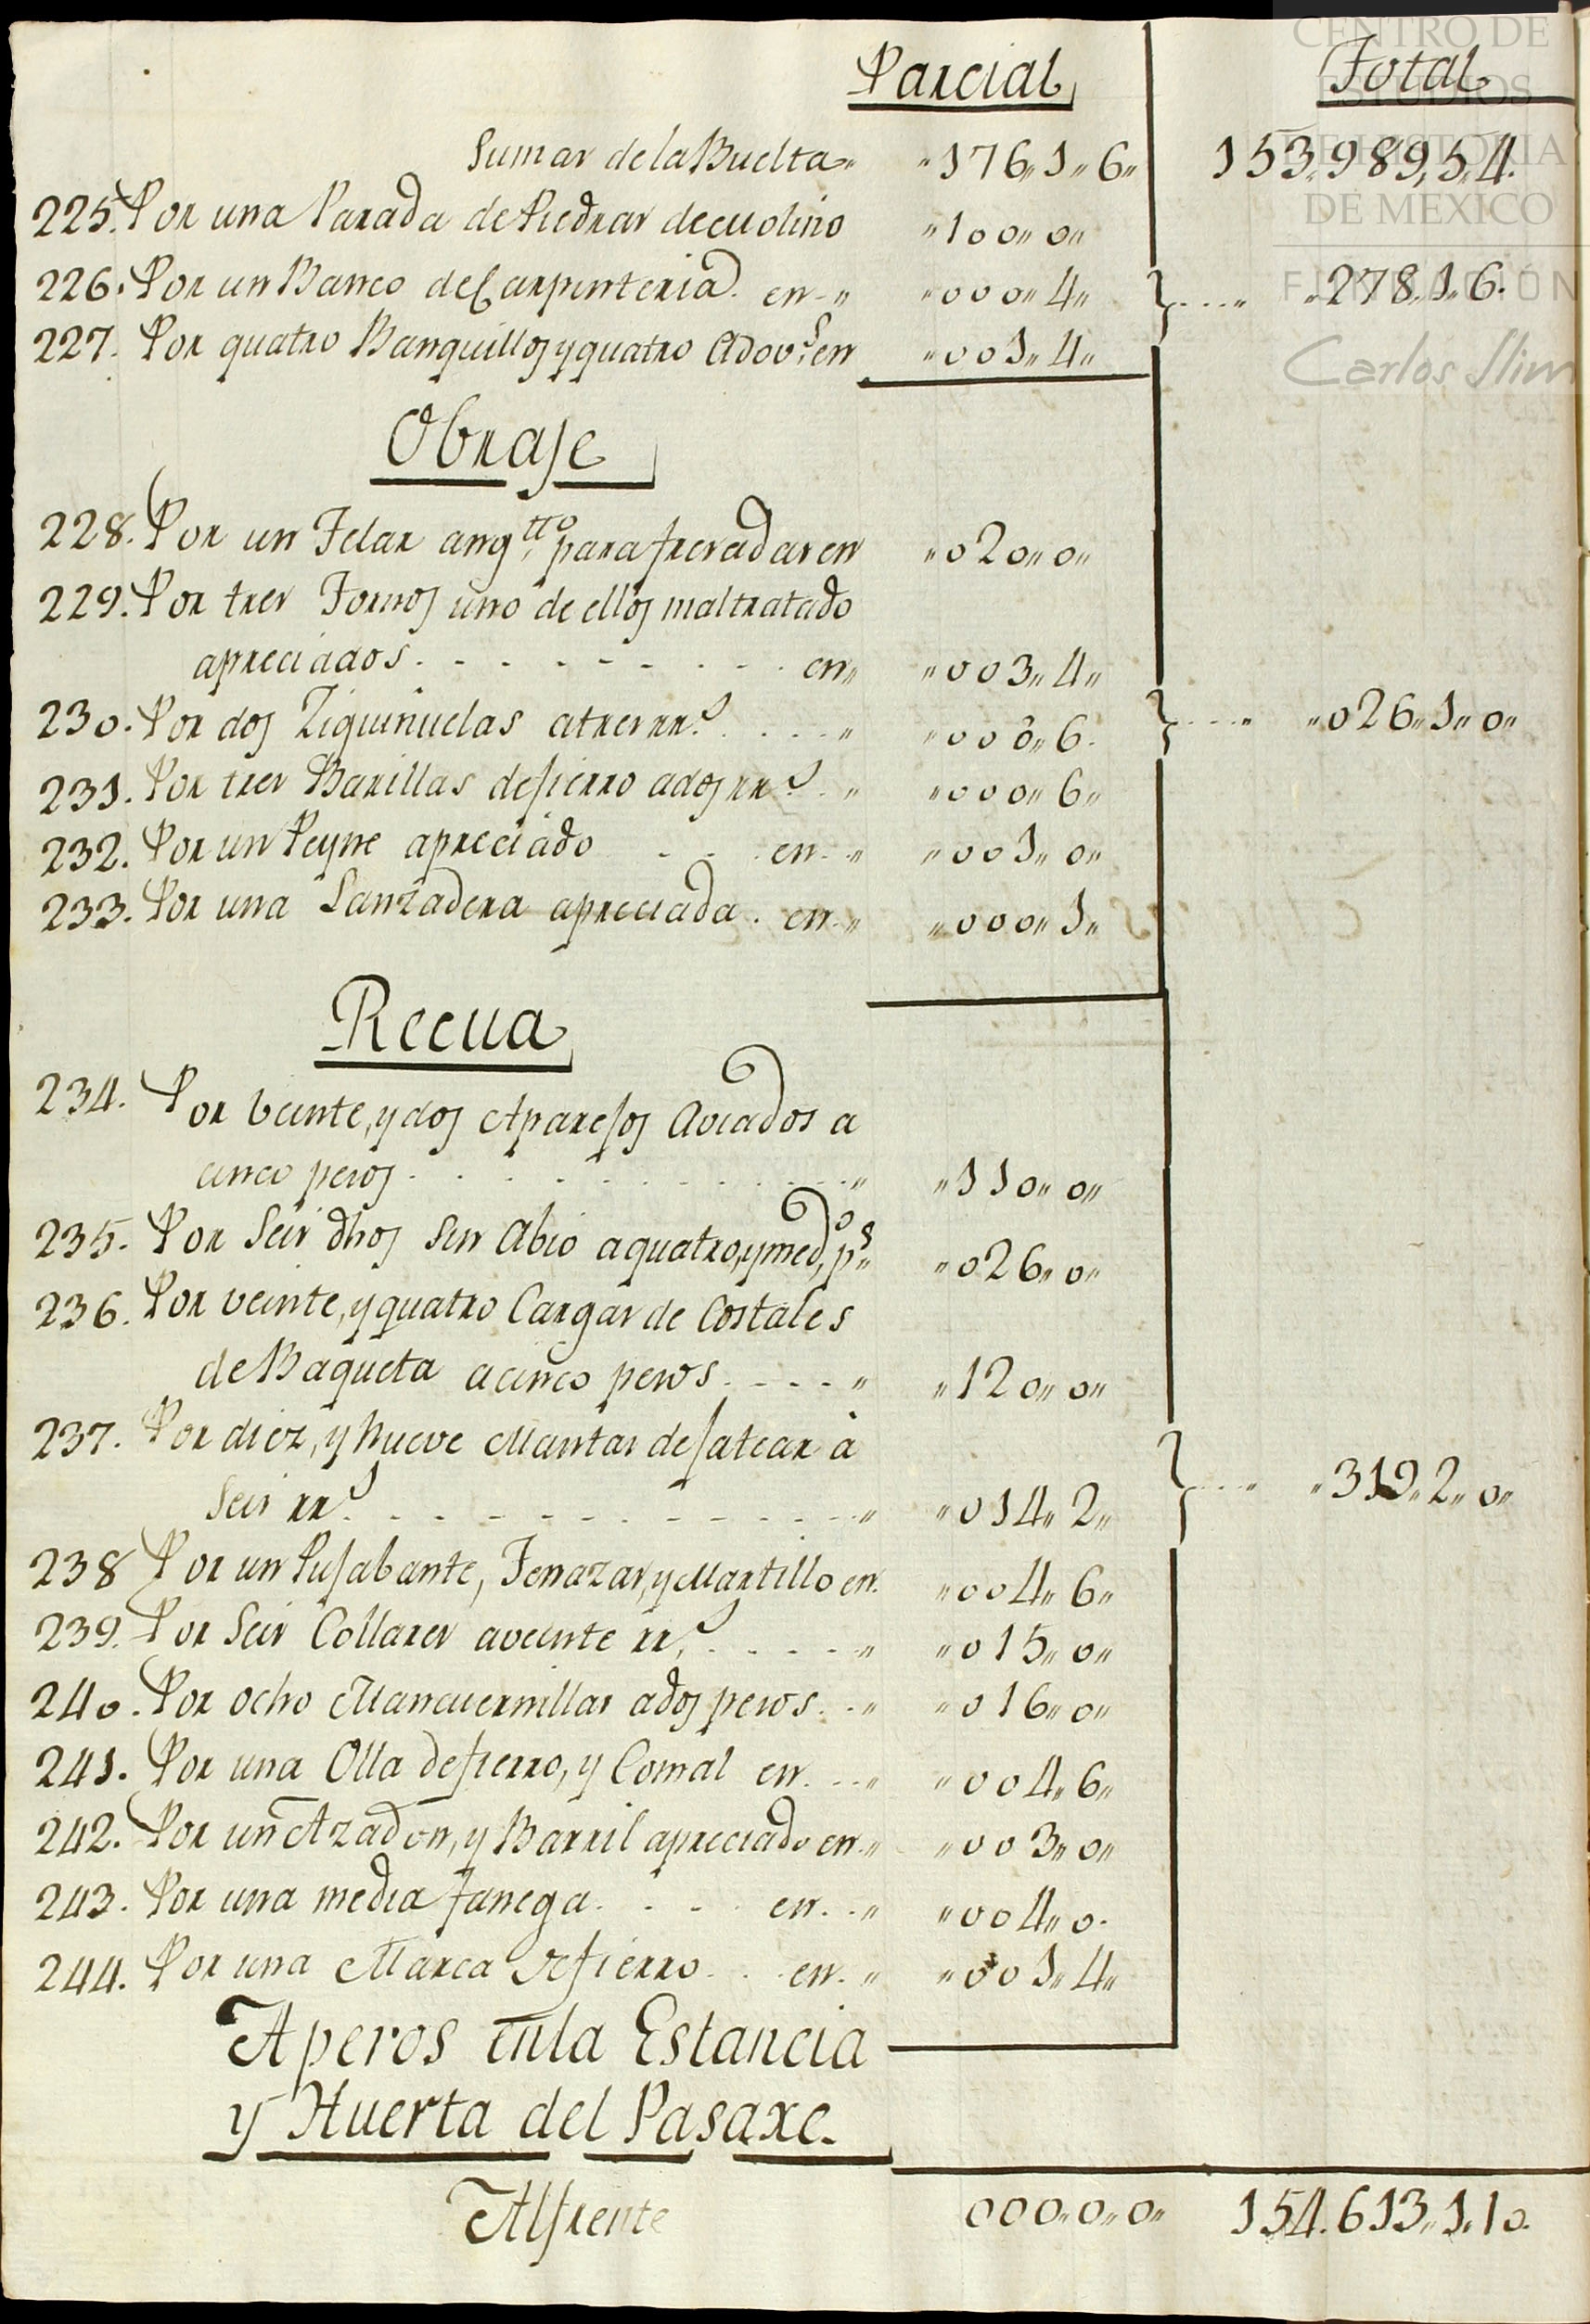 Parcial Total
Sumas de la Buelta „ „176„1„6„ 153.989„5„4.
225. Por una Parada de Piedras de molino „100„0„
226. Por un Banco de Carpinteria. en „ „000„4„ .... „278„1„6.
227. Por quatro Banquillos y quatro Adovs. en „001„4„
Obraje
228. Por un Telar angtto. para fresadas en „020„0„
229. Por tres Tornos uno de ellos maltratado
apreciados . . . . . en„ „003„4„
230. Por dos Ziguiñuelas a tres rrs. . . . „ „000„6. .... „026„1„0„
231. Por tres Barillas de fierro a dos rrs. „ „000„6„
232. Por un Peyne apreciado . . . en „ „001„0„
233. Por una Lanzadera apreciada. en „ „000„1„
Recua
234. Por veinte, y dos Aparejos Aviados a
cinco pesos . . . . . „ „110„0„
235. Por Seis dhos Sin Abio a quatro, y medo, ps„ „026„0„
236. Por veinte, y quatro Cargas de Costales
de Baqueta a cinco pesos . . . . „ „120„0„
237. Por diez, y Nueve Mantas de jatear à
Seis rrs. . . . . . „ „014„2„ .... „319„2„0„
238 Por un Pujabante, Tenazas, y Martillo en. „004„6„
239. Por Seis Collares a veinte rrs. . . . . „ „015„0„
240. Por ocho Mancuernillas a dos pesos . . „ „016„0„
241. Por una Olla de fierro, y Comal en. .. „ „004„6„
242. Por un Azadon, y Barril apreciado en „ „003„0„
243. Por una media fanega . . . . en. „ „004„0.
244. Por una Marca de fierro . . . en. „ „001„4„
Aperos en la Estancia
y Huerta del Pasaxe.
Al frente 000„0„0„ 154.613„1„10.
CENTRO DE
ESTUDIOS
DE HISTORIA
DE MEXICO
FUNDACIÓN
Carlos Slim